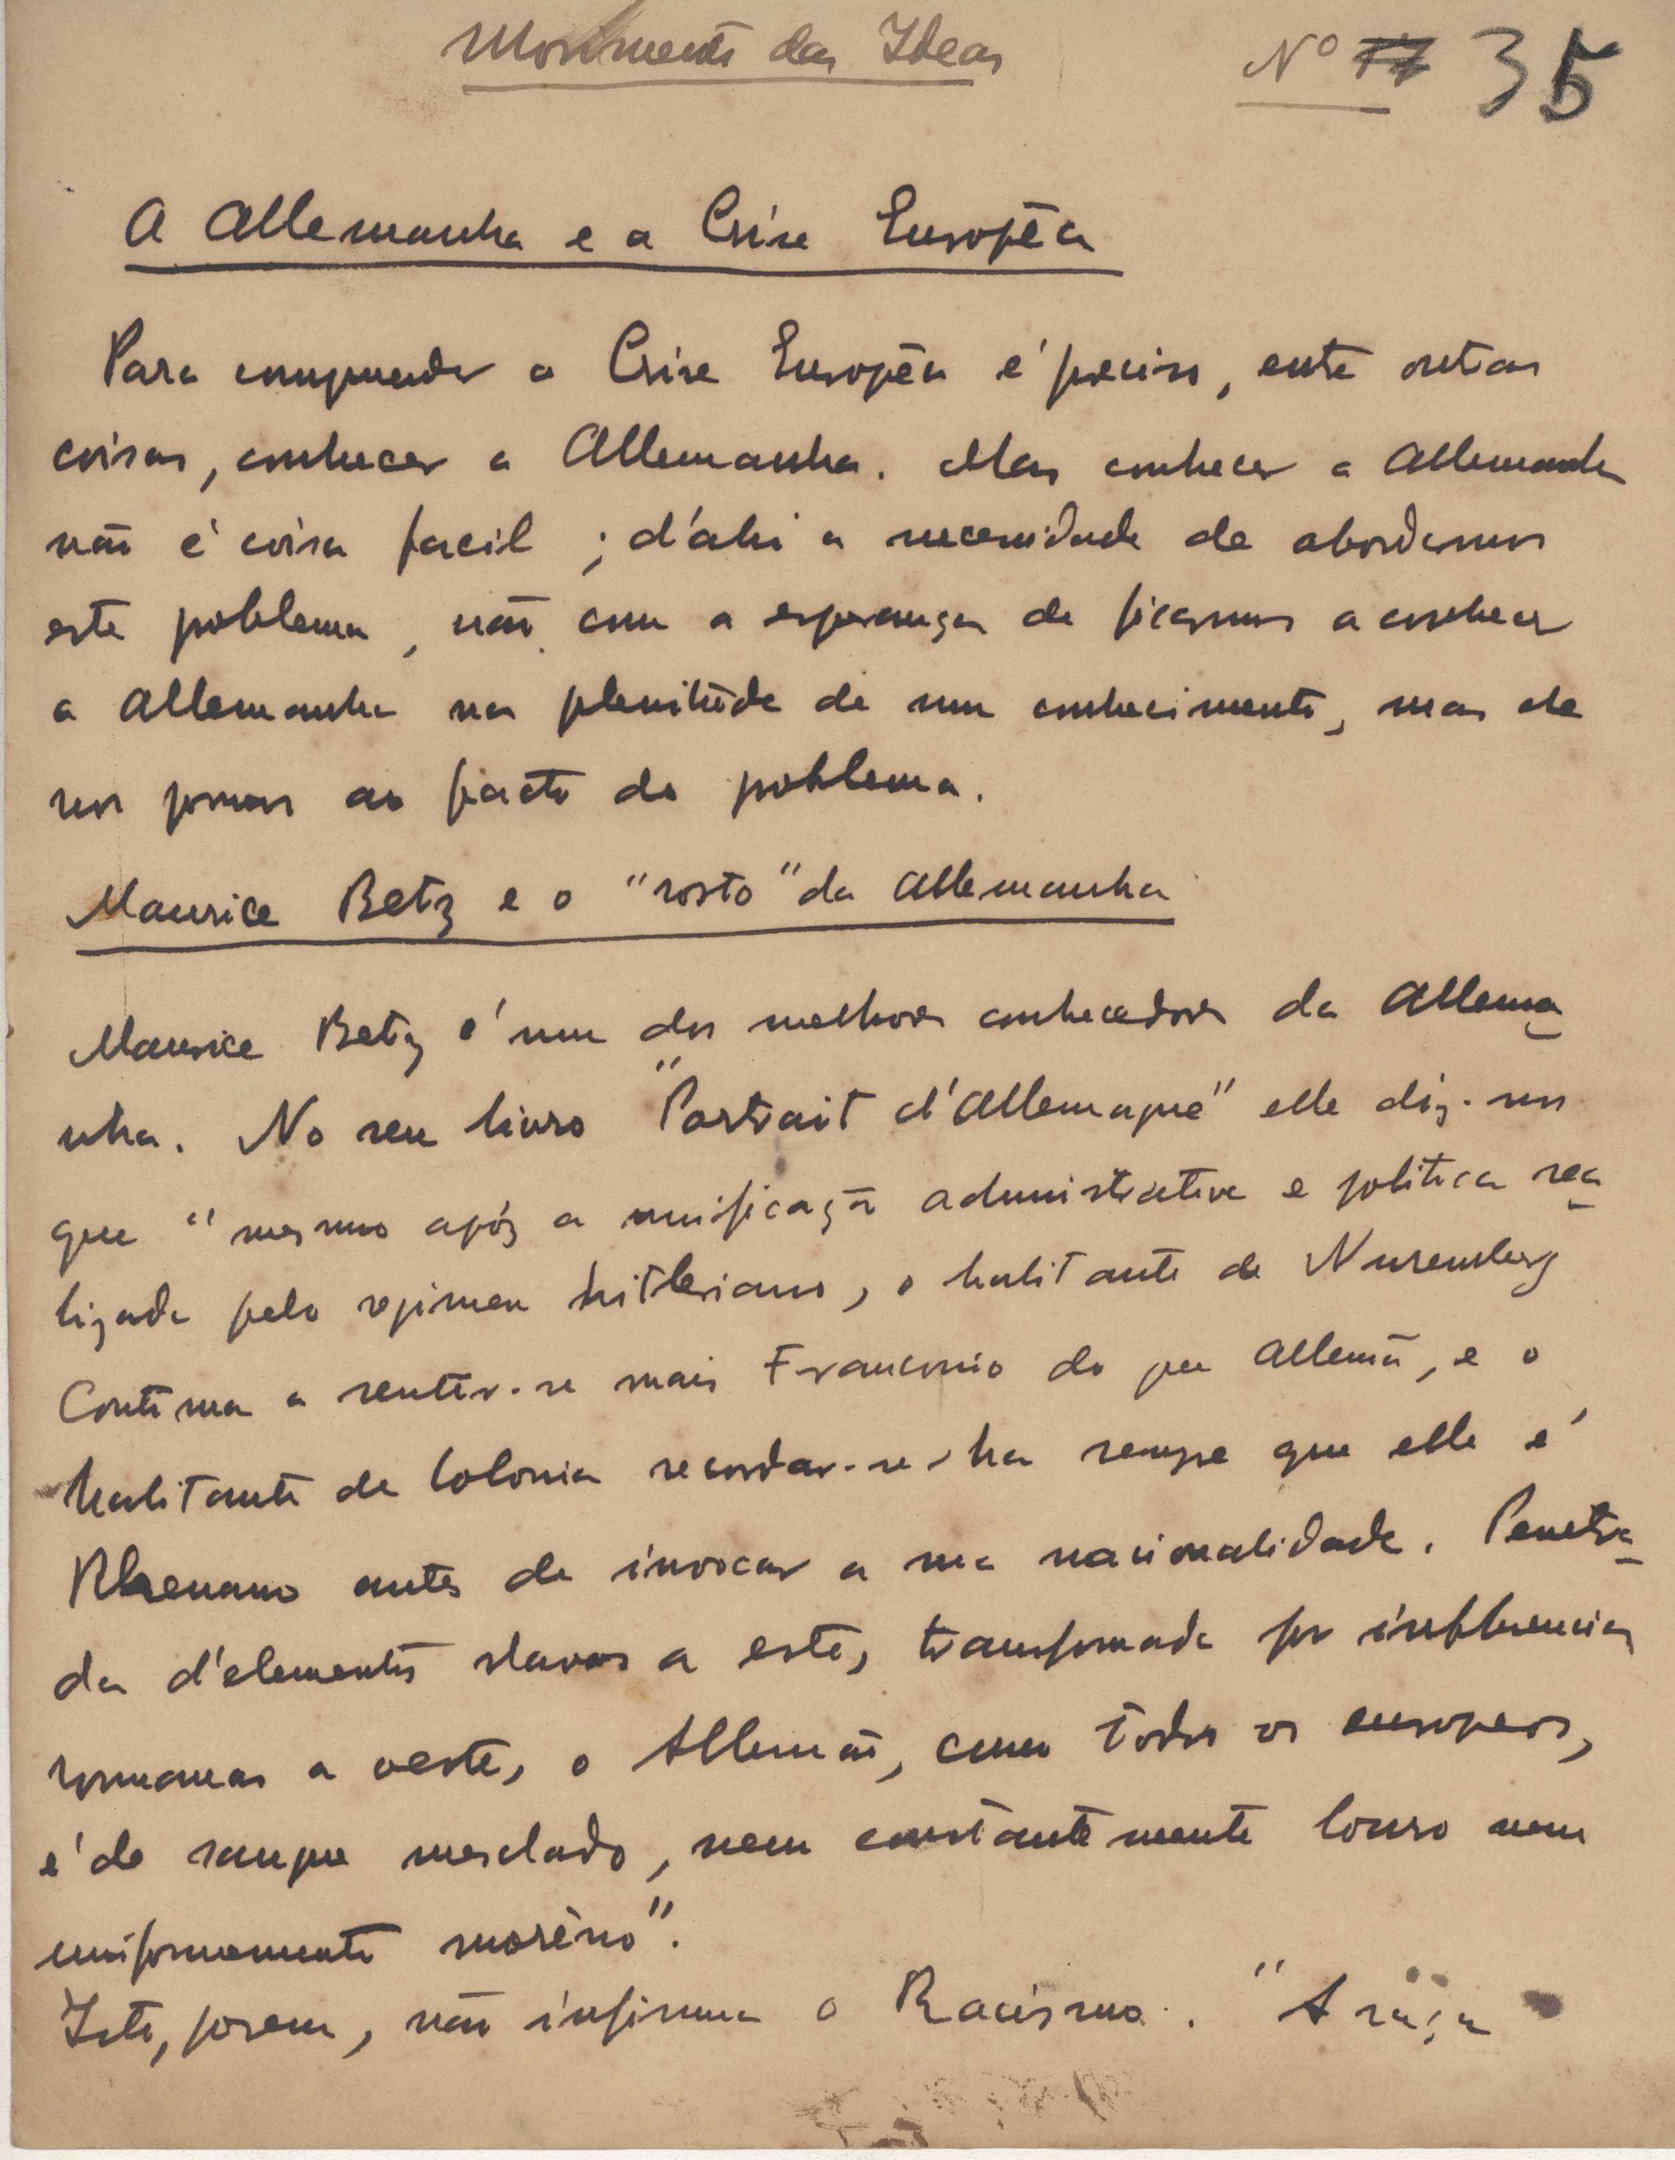 Movimento das Ideas Nº 17 35
A Allemanha e a Crise Européa
Para comprender a Crise Européa é preciso, entre outras
coisas, conhecer a Allemanha. Mas conhecer a Allemanha
não é coisa facil; d'ahi a necessidade de abordarmos
este problema, não com a esperança de ficarmos a conhecer
a Allemanha na plenitude de um conhecimento, mas de
nos pormos ao facto do problema.
Maurice Betz e o "rosto" da Allemanha
Maurice Betz é um dos melhores conhecedores da Allema
nha. No seu livro "Portrait d'Allemagne" elle diz-nos
que "mesmo após a unificação administrativa e politica rea
lizada pelo regimen hitleriano, o habitante de Nuremberg
continua a sentir-se mais Franconio do que Allemão, e o
habitante de Colonia recordar-se-ha sempre que elle é
Rhenano antes de invocar a sua nacionalidade. Penetra
da d'elementos slavos a este, transformada por influencias
romanas a oeste, o Allemão, como todos os europeos,
é de sangue mesclado, nem constantemente louro nem
uniformemente moreno".
Isto, porem, não infirma o Racismo. "A raça